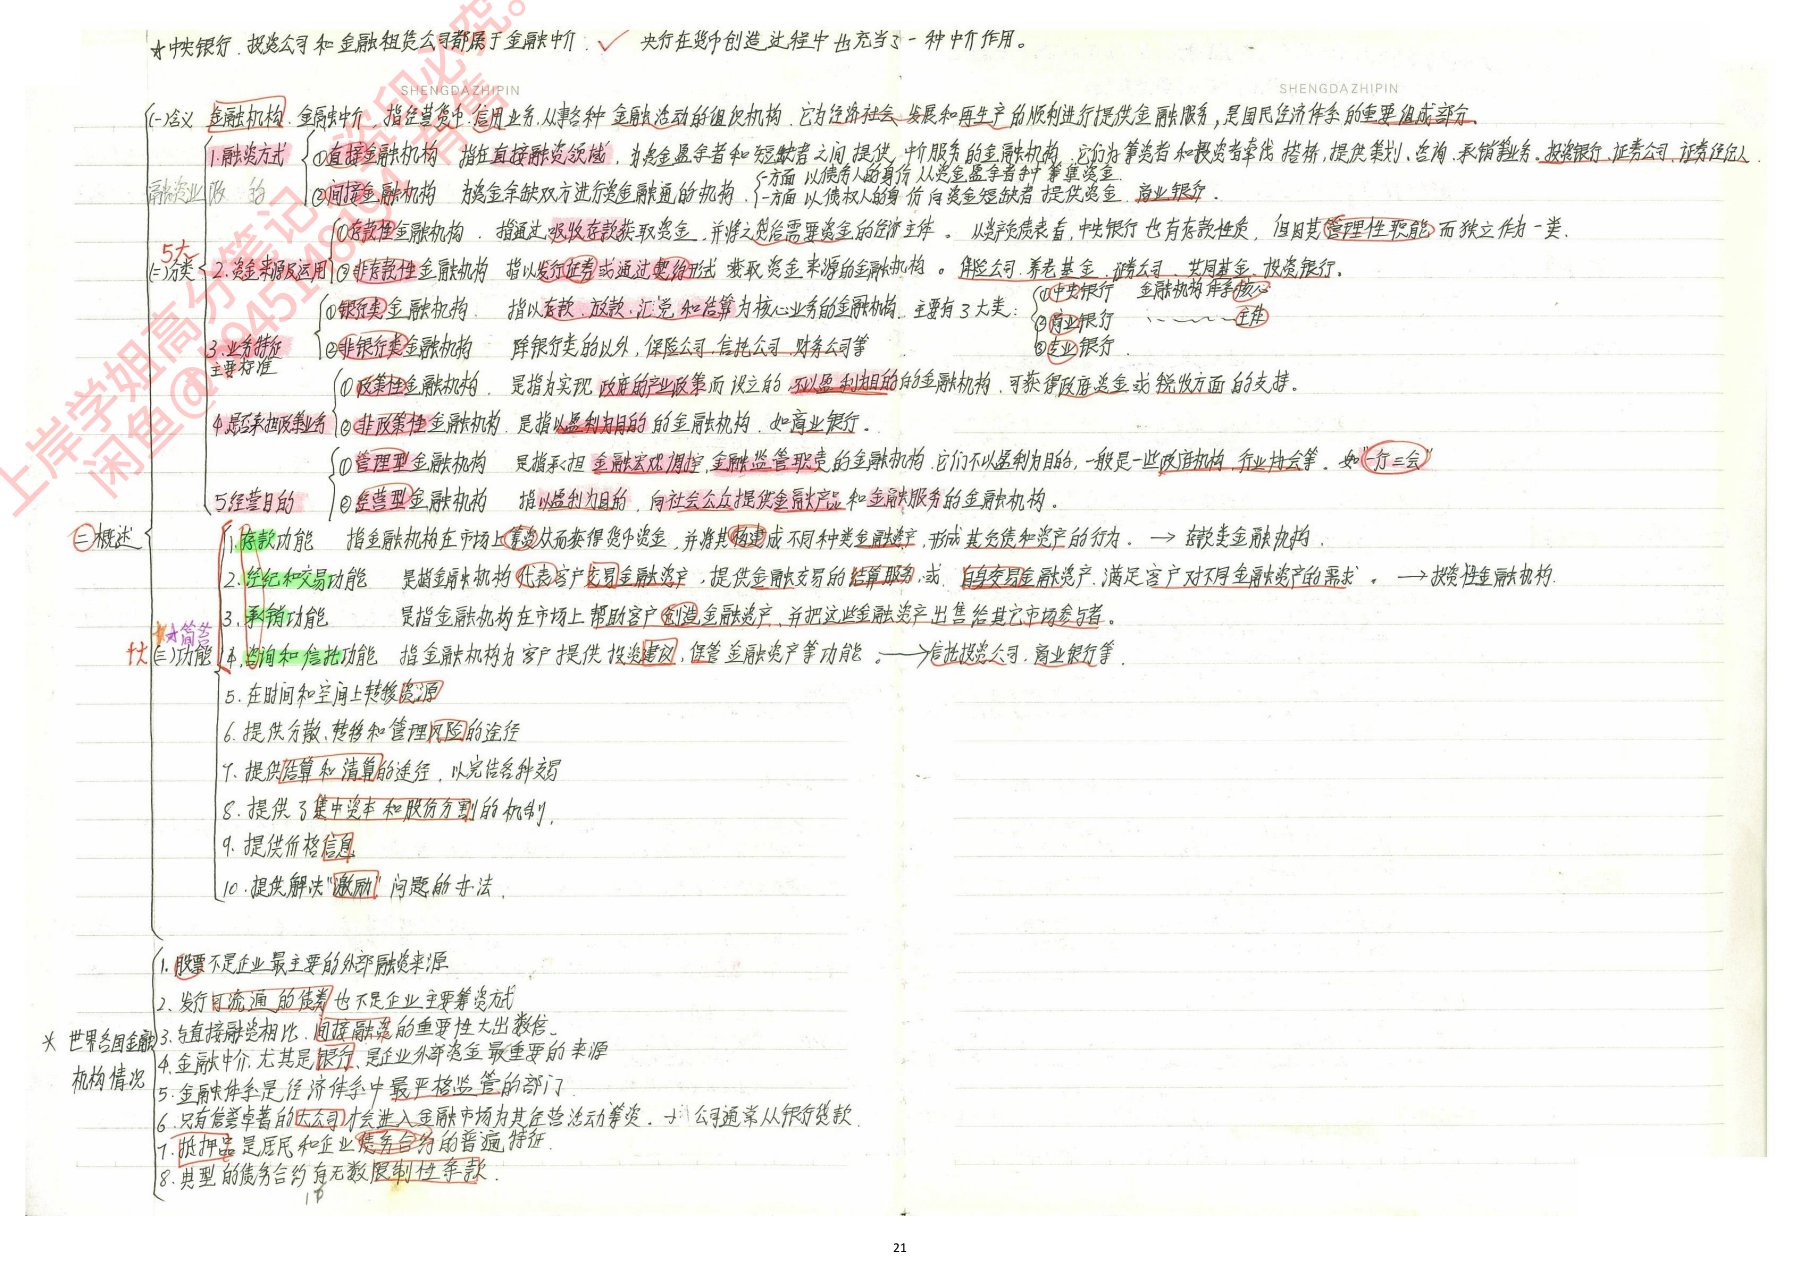 ★中央银行、投资公司和金融租赁公司都属于金融中介. ✓ 央行在货币创造过程中也充当了一种中介作用。
SHENGDAZHIPIN
SHENGDAZHIPIN
(一)含义 金融机构、金融中介,指经营货币、信用业务,从事各种金融活动的组织机构.它为经济社会发展和再生产的顺利进行提供金融服务,是国民经济体系的重要组成部分。
1.融资方式 ①直接金融机构 指在直接融资领域,为资金盈余者和短缺者之间提供中介服务的金融机构.它们为筹资者和投资者牵线搭桥,提供策划、咨询、承销等业务。投资银行、证券公司、证券经纪人.
一方面以债务人的身份从资金盈余者手中筹集资金.
②间接金融机构 为资金余缺双方进行资金融通的机构.
一方面以债权人的身份向资金短缺者提供资金.商业银行。
①存款性金融机构.指通过吸收存款获取资金,并将之贷给需要资金的经济主体。从资产负债表看,中央银行也有存款性质,但因其管理性职能而独立作为一类.
5大
(二)分类 2.资金来源及运用 ②非存款性金融机构 指以发行证券或通过契约形式获取资金来源的金融机构。保险公司.养老基金.证券公司.共同基金.投资银行。
①银行类金融机构. 指以存款、放款、汇兑和结算为核心业务的金融机构.主要有3大类:
①中央银行 金融机构体系核心
②商业银行 主体
③专业银行.
3.业务特征 主要标准 ②非银行类金融机构 除银行类的以外,保险公司.信托公司.财务公司等
①政策性金融机构.是指为实现政府的产业政策而设立的不以盈利为目的的金融机构.可获得政府资金或税收方面的支持。
4.是否承担政策业务 ②非政策性金融机构.是指以盈利为目的的金融机构.如商业银行。
①管理型金融机构 是指承担金融宏观调控.金融监管职责的金融机构.它们不以盈利为目的,一般是一些政府机构,行业协会等。如"一行三会"
5.经营目的 ②经营型金融机构 指以盈利为目的,向社会公众提供金融产品和金融服务的金融机构。
㊂概述
1.存款功能 指金融机构在市场上筹资从而获得货币资金,并将其构建成不同种类金融资产,形成其负债和资产的行为。→ 存款类金融机构.
2.经纪和交易功能 是指金融机构代表客户交易金融资产,提供金融交易的结算服务,或自身交易金融资产.满足客户对不同金融资产的需求。→投资性金融机构.
3.承销功能 是指金融机构在市场上帮助客户创造金融资产,并把这些金融资产出售给其它市场参与者。
★★简答
十大 (三)功能 4.咨询和信托功能 指金融机构为客户提供投资建议,保管金融资产等功能。→信托投资公司.商业银行等.
5.在时间和空间上转移资源
6.提供分散、转移和管理风险的途径
7.提供结算和清算的途径,以完结各种交易
8.提供了集中资本和股份分割的机制.
9.提供价格信息
10.提供解决"激励"问题的办法.
1.股票不是企业最主要的外部融资来源
2.发行可流通的债券也不是企业主要筹资方式
* 世界各国金融机构情况
3.与直接融资相比.间接融资的重要性大出数倍。
4.金融中介.尤其是银行.是企业外部资金最重要的来源
5.金融体系是经济体系中最严格监管的部门
6.只有信誉卓著的大公司才会进入金融市场为其经营活动筹资.小公司通常从银行贷款.
7.抵押品是居民和企业债务合约的普遍特征.
8.典型的债务合约有无数限制性条款.
上岸学姐高分笔记
21